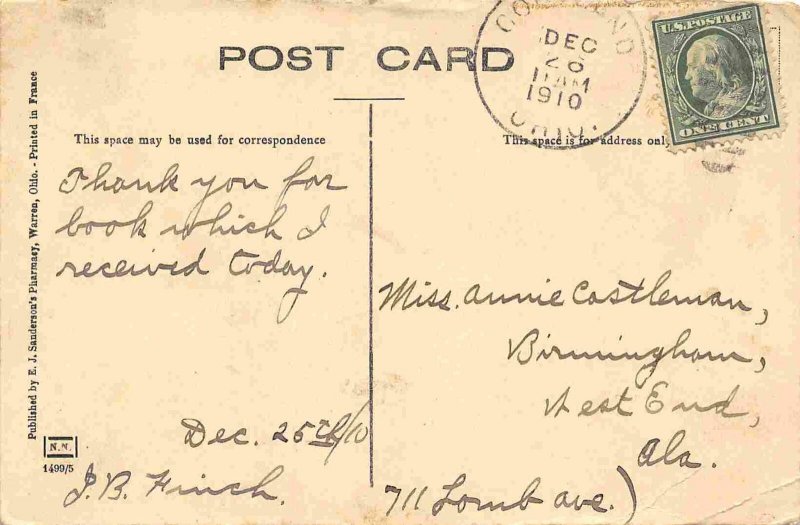 POST CARD
DEC
26
11 AM
1910
OHIO.
U.S. POSTAGE
ONE CENT
This space may be used for correspondence
This space is for address only
Thank you for
book which I
received today.
Dec. 25th/10
J.B. Finch.
Miss. Annie Castleman,
Birmingham,
West End,
Ala.
711 Lomb ave.)
Published by E. J. Sanderson's Pharmacy, Warren, Ohio. - Printed in France
N.N.
1499/5